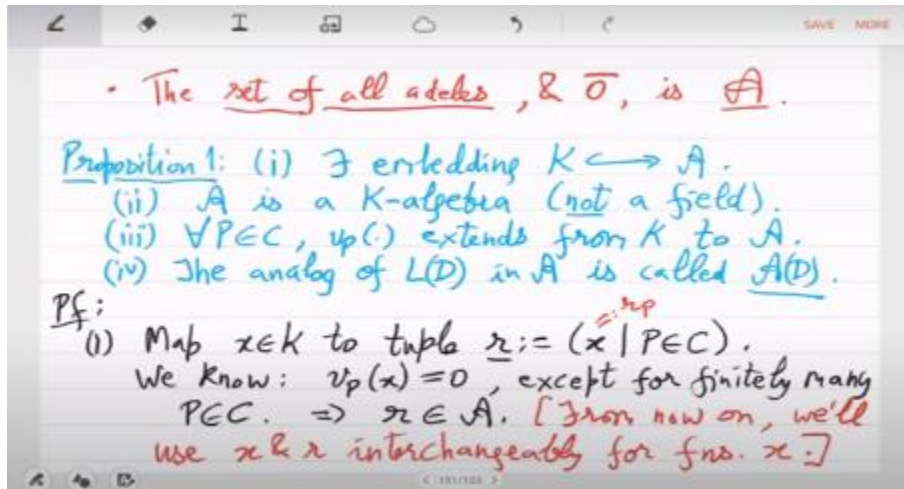 SAVE MORE
• The set of all adeles, & 0̅, is 𝔸.
Proposition 1: (i) ∃ embedding K ↪ 𝔸.
(ii) 𝔸 is a K-algebra (not a field).
(iii) ∀P∈C, vp(.) extends from K to 𝔸.
(iv) The analog of L(D) in 𝔸 is called 𝔸(D).
Pf:
=: rp
(i) Map x∈K to tuple r := (x | P∈C).
We know: vp(x) = 0, except for finitely many
P∈C. ⇒ r ∈ 𝔸. [From now on, we'll
use x & r interchangeably for fns. x.]